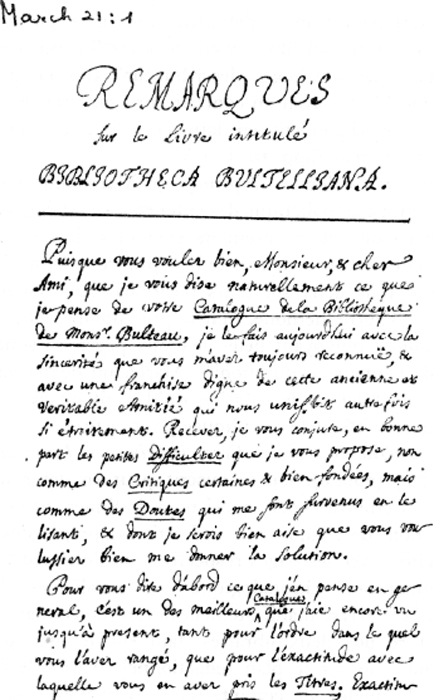 March 21:1
REMARQUES
sur le Livre intitulé
BIBLIOTHECA BULTELLIANA.
Puisque vous voulez bien, Monsieur, & cher
Ami, que je vous dise naturellement ce que
je pense de votre Catalogue de la Bibliotheque
de Monsr. Bulteau, je le fais aujourdhui avec la
sincerité que vous m'avez toujours reconnuë, &
avec une franchise digne de cette ancienne et
veritable Amitié qui nous unissoit autrefois
si étroitement. Recevez, je vous conjure, en bonne
part les petites Difficultez que je vous propose, non
comme des Critiques certaines & bien fondées, mais
comme des Doutes qui me sont survenus en le
lisant, & dont je serois bien aise que vous vou
lussiez bien me donner la solution.
Pour vous dire d'abord ce que j'en pense en ge
neral, c'est un des meilleurs Catalogues que j'aie encore vu
jusqu'à present, tant pour l'ordre dans le quel
vous l'avez rangé, que pour l'exactitude avec
laquelle vous en avez pris les Titres. Exactitu